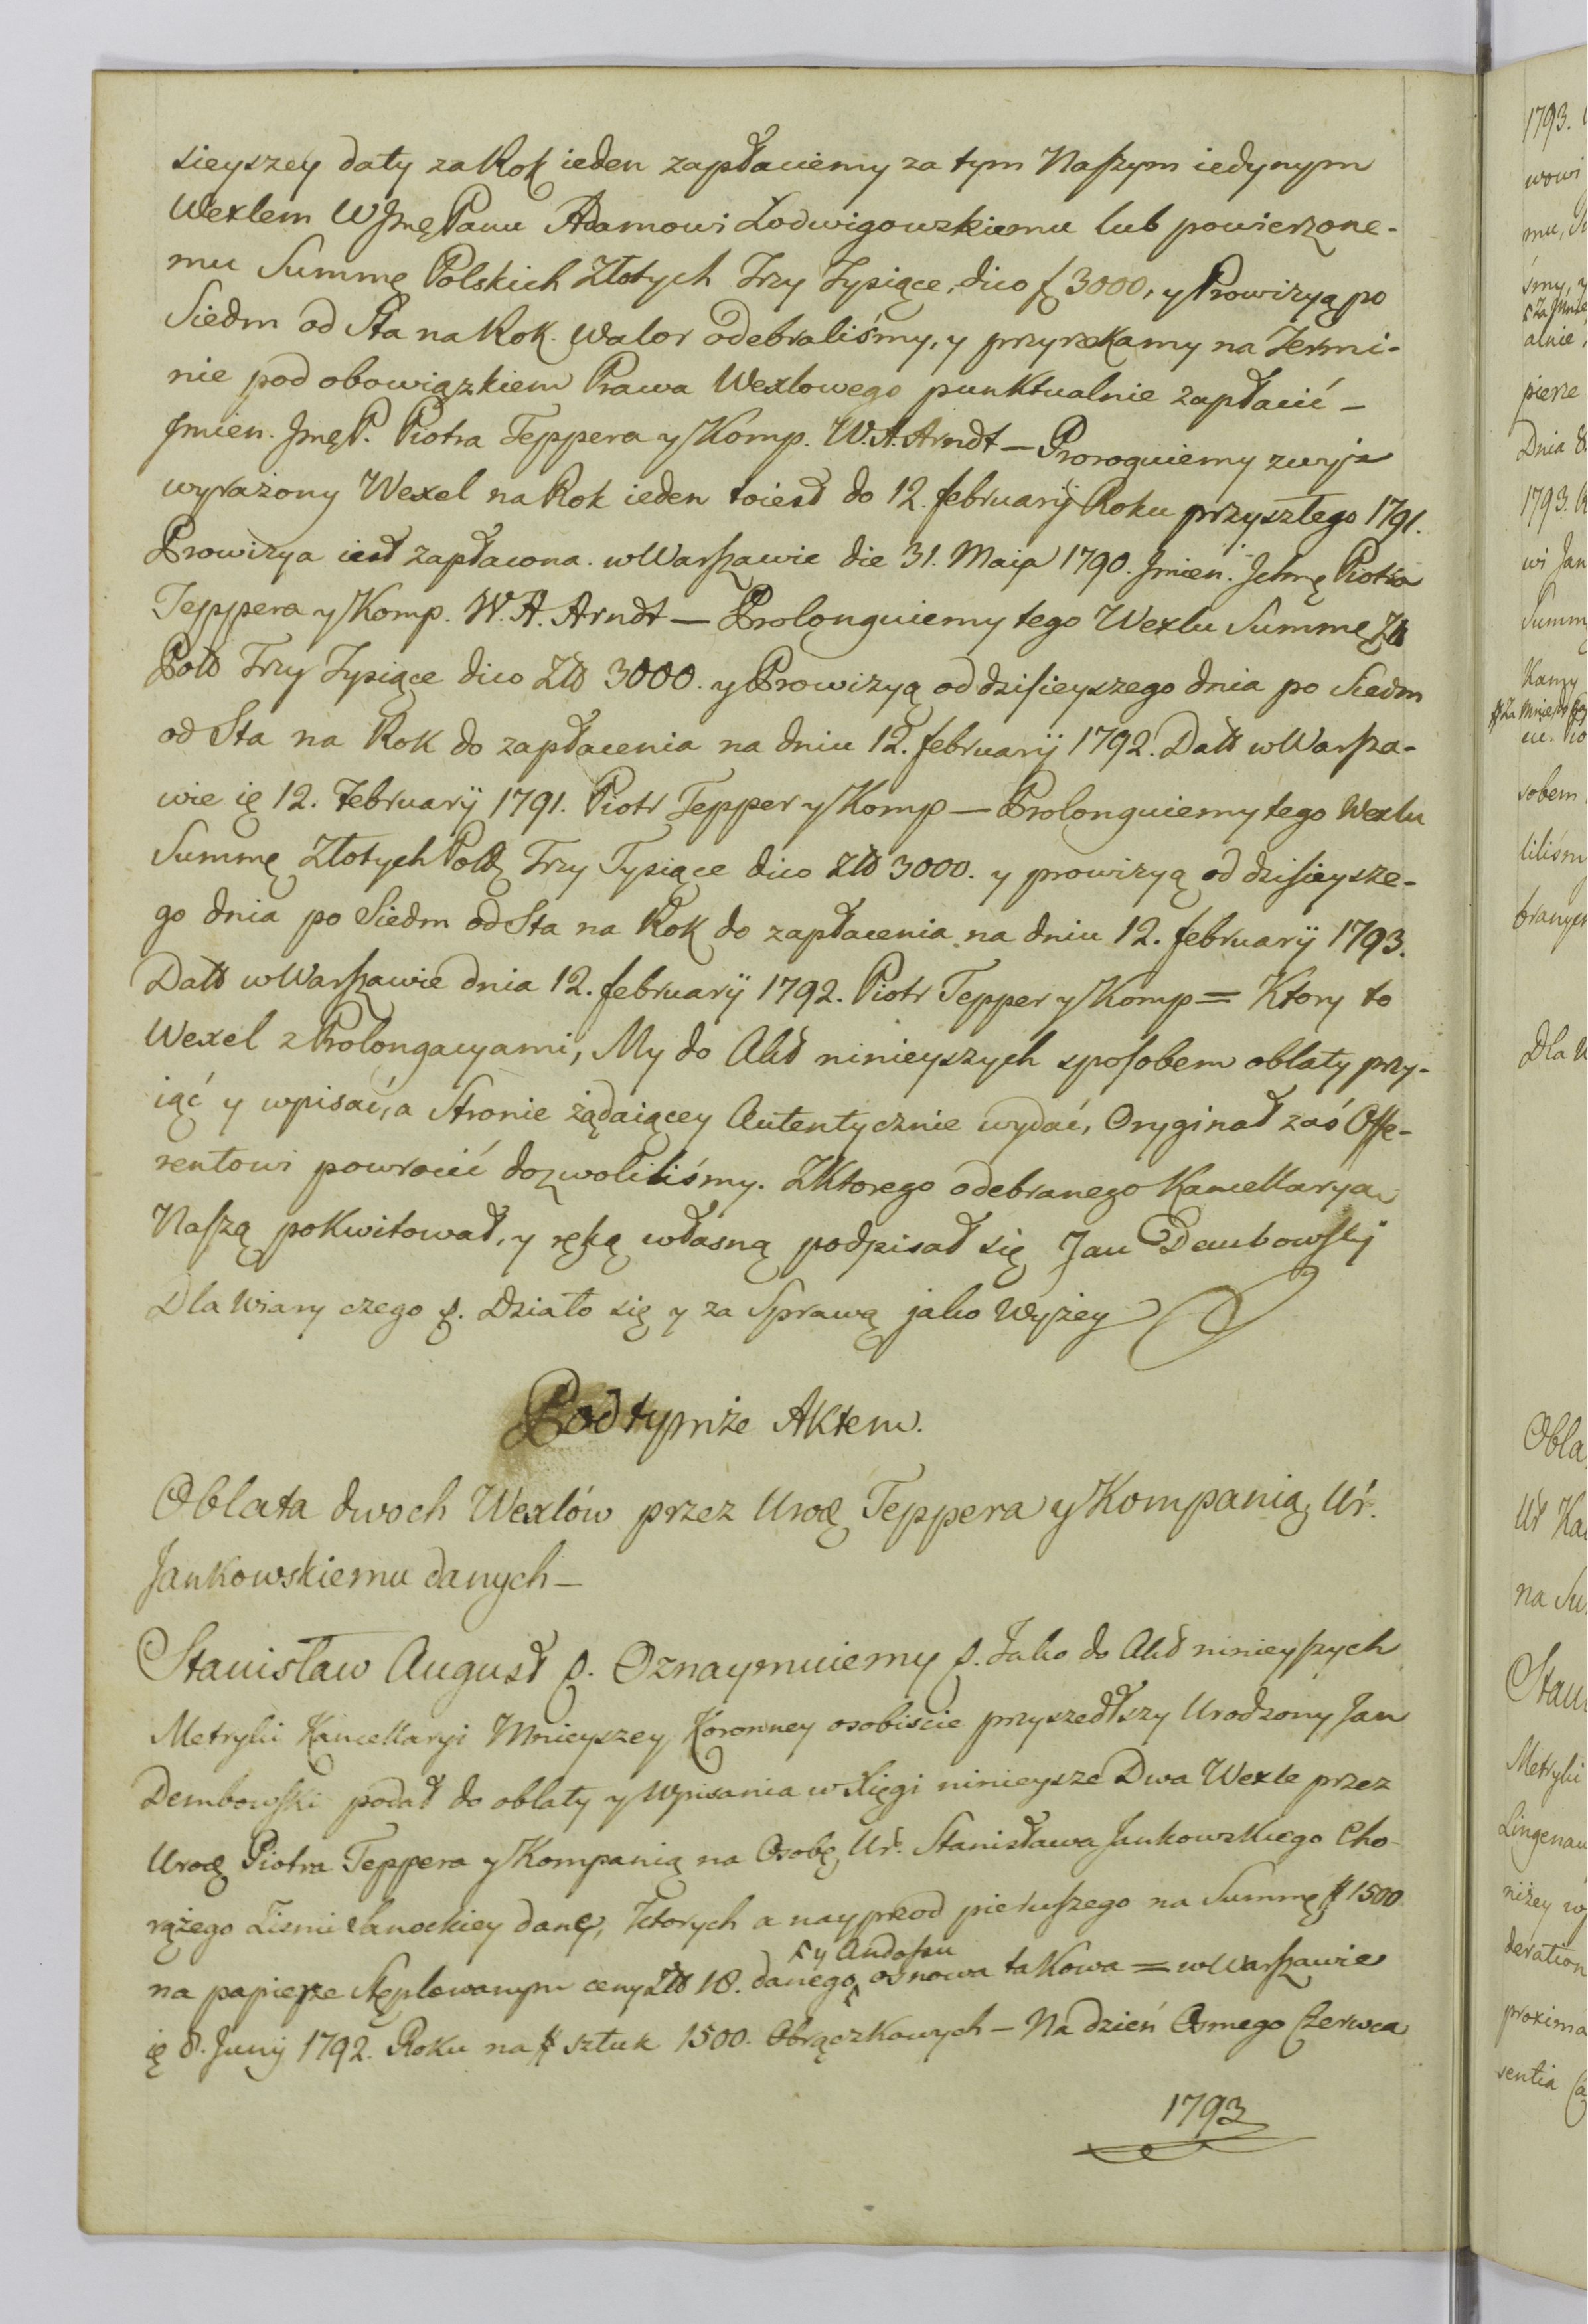 sieyszey daty za Rok ieden zapłaciemy za tym Naszym iedynym
Wexlem WJmę Panu Adamowi Lodwigowskiemu lub powierzone-
mu Summę Polskich Złotych Trzy Tysiące, dico f 3000, y Prowizyą po
Siedm od Sta na Rok. Walor odebraliśmy, y przyrzekamy na Termi-
nie pod obowiązkiem Prawa Wexlowego punktualnie zapłacić —
Jmien. JmęP. Piotra Teppera y Komp. W. A. Arndt — Proroguiemy zwyż
wyrażony Wexel na Rok ieden toiest do 12. februarij Roku przyszłego 1791.
Prowizya iest zapłacona. w Warszawie die 31. Maja 1790. Jmien. Jchmę Piotra
Teppera y Komp. W. A. Arndt — Prolonguiemy tego Wexlu Summę Zł
Polł Trzy Tysiące dico Złł 3000. y Prowizyą od dzisieyszego dnia po Siedm
od Sta na Rok do zapłacenia na dniu 12. februarij 1792. Datt w Warsza-
wie ię 12. februarij 1791. Piotr Tepper y Komp — Prolonguiemy tego Wexlu
Summę Złotych Polł Trzy Tysiące dico Złł 3000. y prowizyą od dzisieysze-
go dnia po Siedm od Sta na Rok do zapłacenia na dniu 12. februarij 1793.
Datt w Warszawie dnia 12. februarij 1792. Piotr Tepper y Komp = Ktory to
Wexel z Prolongacyami, My do Akt ninieyszych sposobem oblaty przy-
iąć y wpisać, a Stronie żądaiącey Autentycznie wydać, Oryginał zaś Offe-
rentowi powrocić dozwoliliśmy. Z Ktorego odebranego Kancellarya
Naszą pokwitował, y ręką własną podpisał się Jan Dembowskj
Dla Wiary czego p. Działo się y za Sprawą jako Wyżey
Pod tymże Aktem.
Oblata dwoch Wexlów przez Urodę Teppera y Kompanią, Ur.
Jankowskiemu danych —
Stanisław August p. Oznaymuiemy p. Jako do Akt ninieyszych
Metryki Kancellaryi Mnieyszey Koronney osobiscie przyszedłszy Urodzony Jan
Dembowski podał do oblaty y Wpisania w Xięgi ninieysze Dwa Wexle przez
Urodę Piotra Teppera y Kompanią na Osobę Ur. Stanisława Jankowskiego Cho-
rążego Ziemi Sanockiey danę, Ktorych a nayprzod pierwszego na Summę # 1500
y Andossu
na papierze Stęplowanym ceny Złł 18. danego osnowa takowa = w Warszawie
ię 8. Junij 1792. Roku na # sztuk 1500. Obrączkowych — Na dzień Osmego Czerwca
1793
1793.
wowi
mu,
śmy, y
alnie,
pierze
Dnia 8.
1793.
wi Jan
Summ
Kamy
sobem
liliśm
branych
Dla W
Obla
Ur Ka
na Su
Stani
Metryki
Lingenau
niżey w
deration
proxima
sentia